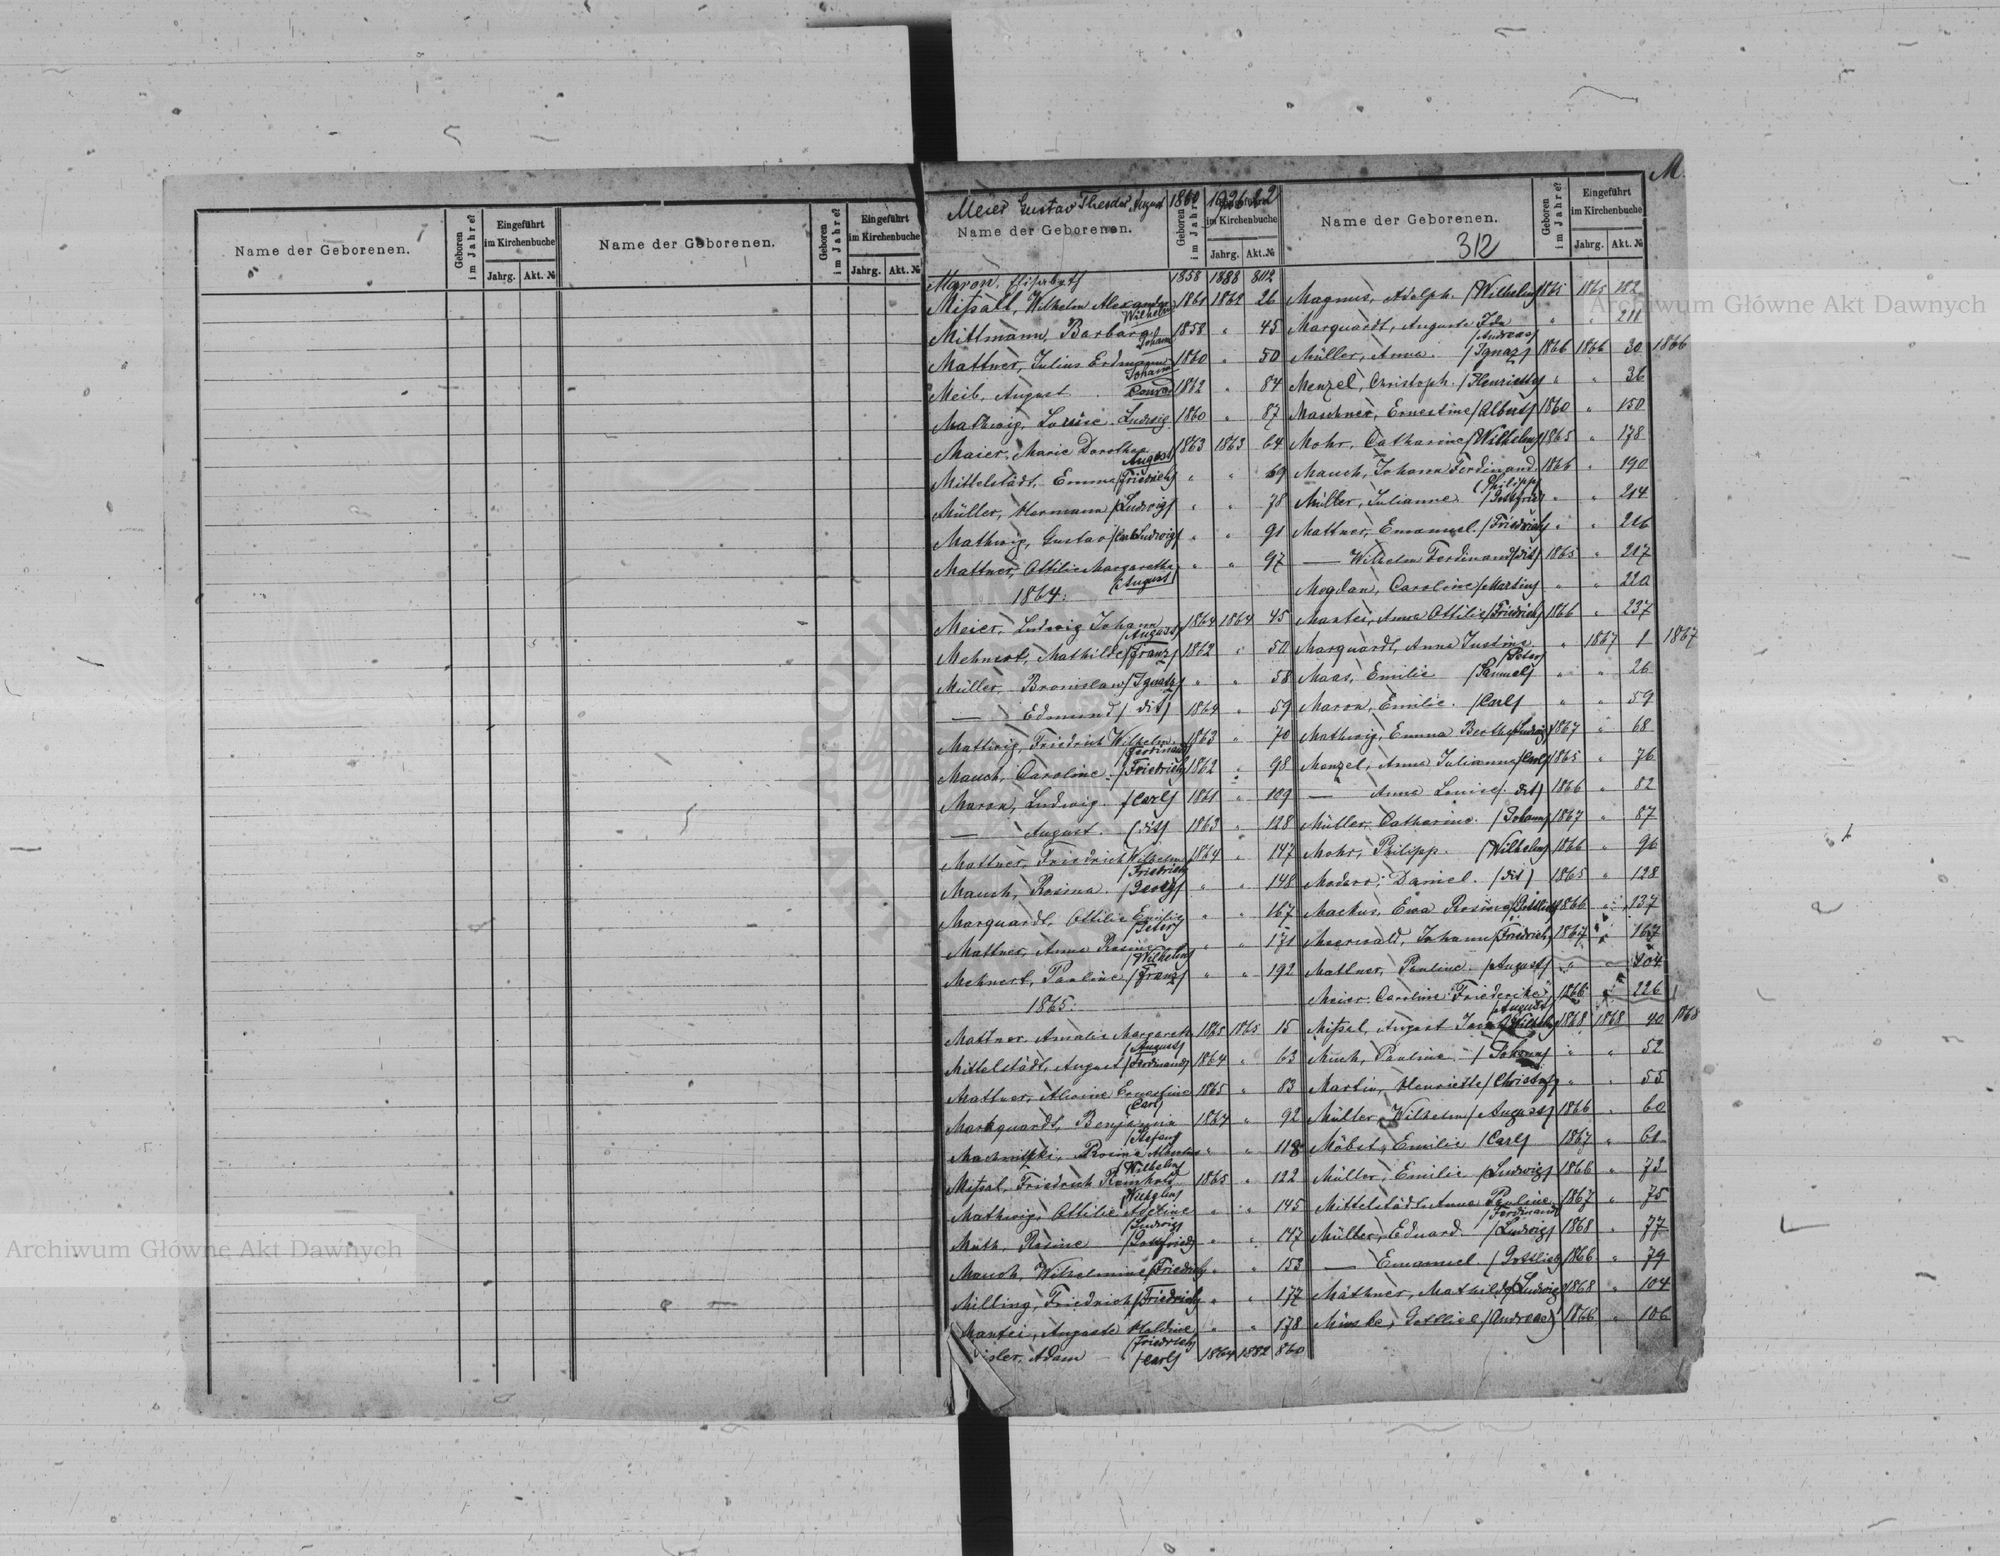 M.
Name der Geborenen.
Geboren im Jahre?
Eingeführt im Kirchenbuche
Jahrg. Akt. №
Name der Geborenen.
Geboren im Jahre?
Eingeführt im Kirchenbuche
Jahrg. Akt. №
Meier Gustav Theodor August 1860
Name der Geborenen.
Geboren im Jahre
im Kirchenbuche
Jahrg. Akt. №
Name der Geborenen.
312
Geboren im Jahre?
Eingeführt im Kirchenbuche
Jahrg. Akt. №
Maron, Elisabeth 1858 1888 802
Mißall, Wilhelm Alexander 1861 1862 26
Wilhelm
Mittmann, Barbara 1858 " 45
Johann
Mattner, Julius Erdmann 1860 " 50
Johann
Meib, August Conrad 1862 " 84
Mathwig, Louise Ludwig 1860 " 87
Maier, Marie Dorothea 1863 1863 64
August
Mittelstädt, Emma (Friedrich) " " 69
Müller, Hermann (Ludwig) " " 78
Mathwig, Gustav (Carl Ludwig) " " 91
Mattner, Ottilie Margaretha " " 97
(August)
1864:
Meier, Ludwig Johann 1864 1864 45
(August)
Mehnert, Mathilde (Franz) 1862 " 50
Müller, Bronislaw (Ignatz) " " 58
— Edmund (dit) 1864 " 59
Mathwig, Friedrich Wilhelm 1863 " 70
(Ferdinand)
Mauch, Caroline (Friedrich) 1862 " 98
Maron, Ludwig (Carl) 1861 " 109
— August (dit) 1863 " 128
Mattner, Friedrich Wilhelm 1864 " 147
(Friedrich)
Mauch, Rosina (Georg) " " 148
Marquardt, Ottilie Emilie " " 167
(Peter)
Mattner, Anna Rosine " " 171
(Wilhelm)
Mehnert, Pauline (Franz) " " 192
1865:
Mattner, Amalie Margareth 1865 1865 15
(August)
Mittelstädt, August (Ferdinand) 1864 " 63
Mattner, Alwine Ernestine 1865 " 83
(Carl)
Markquardt, Benjamin 1864 " 92
(Stefan)
Rosina Albertine " " 118
(Wilhelm)
Mißal, Friedrich Reinhold 1865 " 122
(Wilhelm)
Mathwig, Ottilie Adeline " " 145
(Ludwig)
Muth, Rosine (Gottfried) " " 147
Mauch, Wilhelmine (Friedrich) " " 153
Milling, Friedrich (Friedrich) " " 177
Mantei, Auguste " " 178
(Friedrich)
Adam (Carl) 1864 1882 860
Magnus, Adolph. (Wilhelm) 1865 1865 182
Marquardt, Auguste Ida " " 211
(Andreas)
Müller, Anna. (Ignaz) 1866 1866 30 1866
Menzel, Christoph. (Henriette) " " 36
Ernestine (Albert) 1860 " 150
Mohr, Catharine (Wilhelm) 1865 " 178
Mauch, Johann Ferdinand 1866 " 190
(Philipp)
Müller, Julianne (Gottfried) " " 214
Mattner, Emanuel. (Friedrich) " " 216
— Wilhelm Ferdinand (dit) 1865 " 217
Mogdan, Caroline (Martin) " " 220
Mantei, Anna Ottilie (Friedrich) 1866 " 237
Marquardt, Anna Justine " 1867 1 1867
(Peter)
Maas, Emilie (Samuel) " " 26
Maron, Emilie. (Carl) " " 59
Mathwig, Emma Bertha (Ludwig) 1867 " 68
Menzel, Anna Julianna (Carl) 1865 " 76
— Anna Louise (dit) 1866 " 82
Müller, Catharina. (Johann) 1867 " 87
Mohr, Philipp. (Wilhelm) 1866 " 96
Daniel. (dit) 1865 " 128
Mackus, Ewa Rosina (Gottlieb) 1866 " 137
Meerwald, Johann (Friedrich) 1867 " 167
Mattner, Pauline. (August) " " 204
Meier, Caroline Friederike 1866 " 226
(August)
Mißal, August (Wilhelm) 1868 1868 40 1868
Much, Pauline (Johann) " " 52
Martin, Henriette (Christof) " " 55
Müller, Wilhelm (August) 1866 " 60
Möbst, Emilie (Carl) 1867 " 61
Müller, Emilie. (Ludwig) 1866 " 73
Mittelstädt, Anna Pauline 1867 " 75
(Ferdinand)
Müller, Eduard. (Ludwig) 1868 " 77
— Emanuel. (Gottlieb) 1866 " 79
Mäthner, Mathilde (Ludwig) 1868 " 104
Gottlieb (Andreas) 1868 " 106
Archiwum Główne Akt Dawnych
Archiwum Główne Akt Dawnych